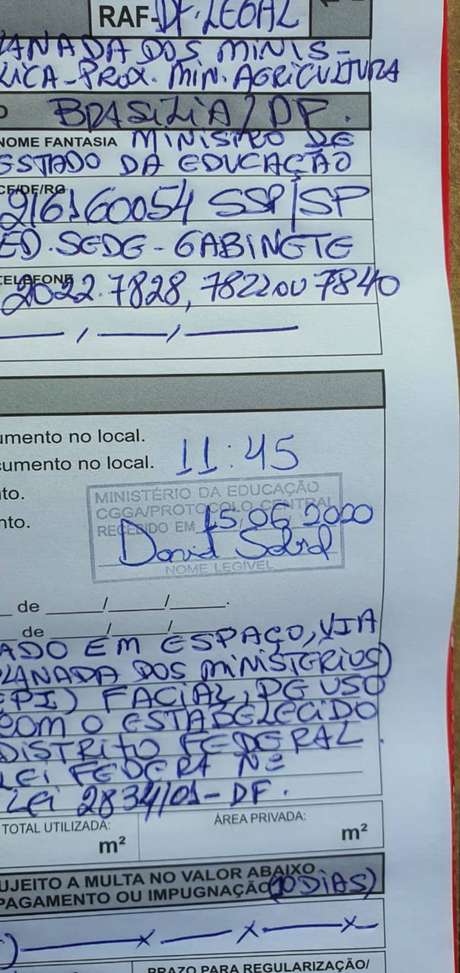 RAF-DF LEGAL
PLANADA DOS MINIS-
LICA-PROX. MIN. AGRICULTURA
BRASÍLIA/DF.
NOME FANTASIA MINISTRO DE
ESTADO DA EDUCAÇÃO
CF/DF/RG
216160054 SSP/SP
ED. SEDE-GABINETE
TELEFONE
2022.7828, 7822 OU 7840
umento no local.
cumento no local. 11:45
to.
nto.
MINISTÉRIO DA EDUCAÇÃO
CGGA/PROTOCOLO CENTRAL
RECEBIDO EM 15,06,2020
David
NOME LEGÍVEL
de ___/___/___.
de ___/___/___.
ADO EM ESPAÇO, VIA
PLANADA DOS MINISTÉRIOS)
EPI) FACIAL, DE USO
COM O ESTABELECIDO
DISTRITO FEDERAL.
LEI FEDERA Nº
LEI 2834/01-DF.
TOTAL UTILIZADA:
m²
ÁREA PRIVADA:
m²
UJEITO A MULTA NO VALOR ABAIXO
PAGAMENTO OU IMPUGNAÇÃO (10 DIAS)
PRAZO PARA REGULARIZAÇÃO/